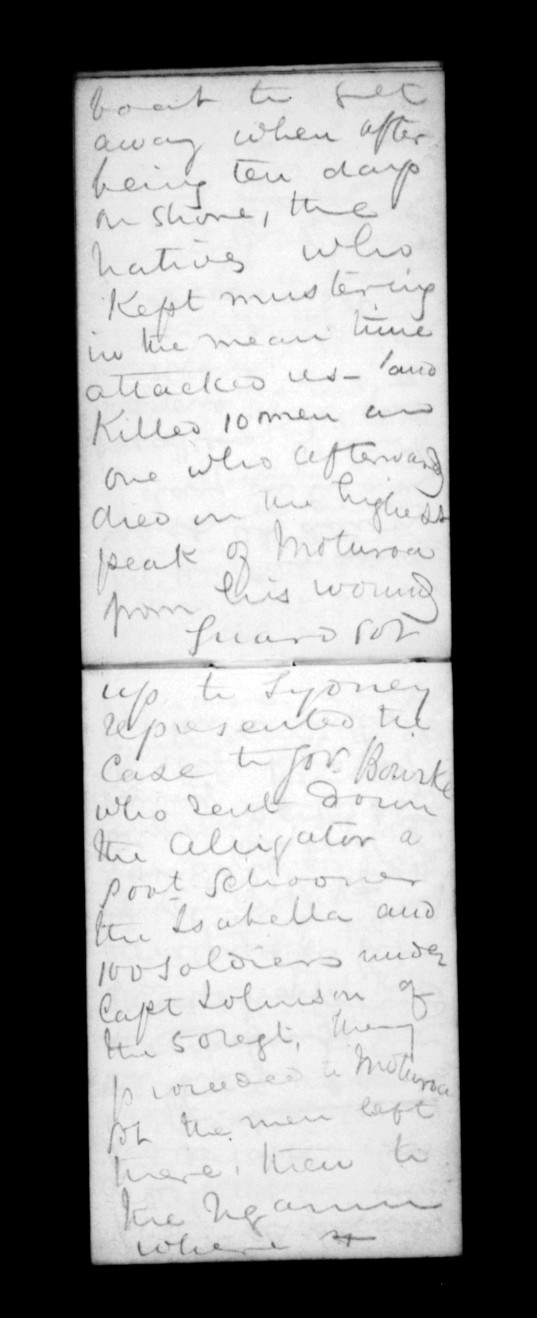 boat to get
away when after
being ten days
on shore, the
natives who
Kept mustering
in the mean time
attacked us - and
Killed 10 men and
one who afterwards
died on the highest
peak of Moturoa
from his wound
Guard got
up to Sydney
represented the
case to Gov. Bourke
who sent down
the Alligator a
govt Schooner
the Isabella and
100 soldiers under
Capt Johnson of
the 50 regt, they
proceeded to Moturoa
got the men left
there, then to
the Ngamu
where